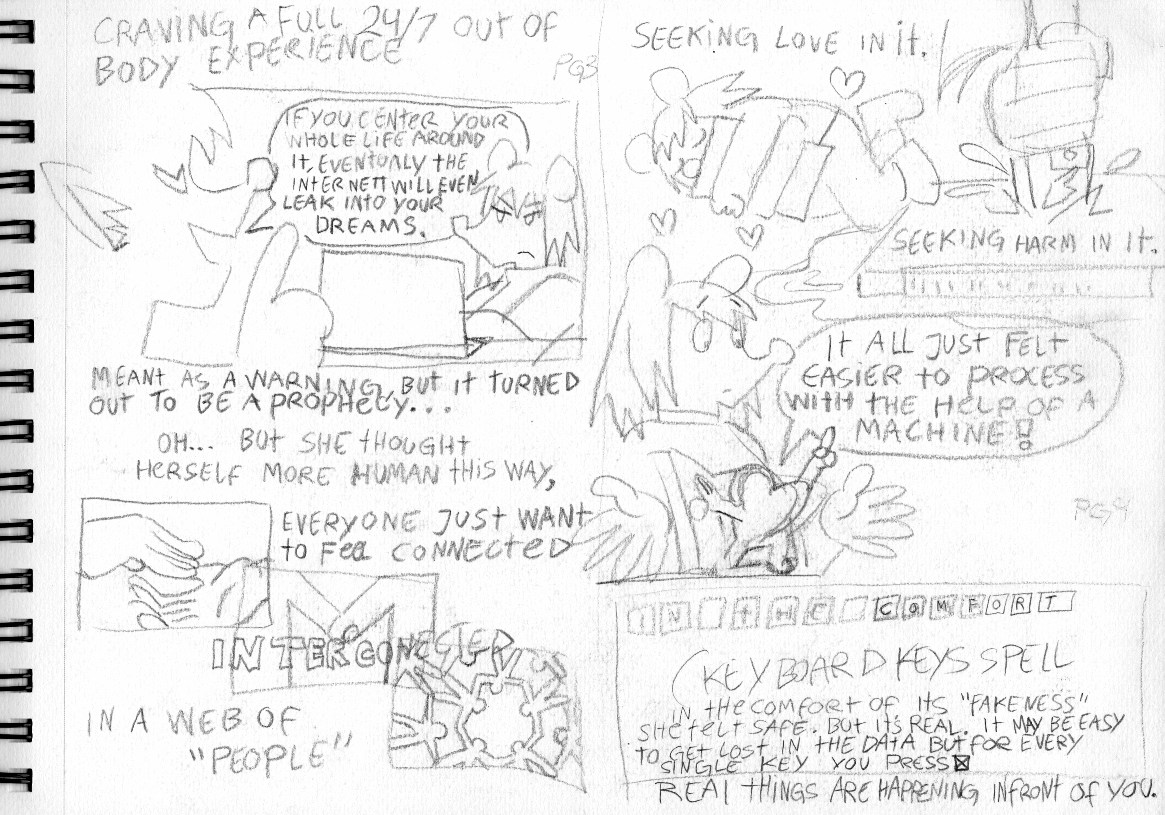 CRAVING A FULL 24/7 OUT OF
BODY EXPERIENCE
PG3
IF YOU CENTER YOUR
WHOLE LIFE AROUND
IT, EVENTUALY THE
INTERNETT WILL EVEN
LEAK INTO YOUR
DREAMS.
MEANT AS A WARNING, BUT IT TURNED
OUT TO BE A PROPHECY...
OH... BUT SHE THOUGHT
HERSELF MORE HUMAN THIS WAY,
EVERYONE JUST WANT
TO FEEL CONNECTED
IN A WEB OF
"PEOPLE"
SEEKING LOVE IN IT.
SEEKING HARM IN IT.
IT ALL JUST FELT
EASIER TO PROCESS
WITH THE HELP OF A
MACHINE!
PG4
IN THE COMFORT
(KEYBOARD KEYS SPELL
IN THE COMFORT OF ITS "FAKENESS"
SHE FELT SAFE. BUT IT'S REAL. IT MAY BE EASY
TO GET LOST IN THE DATA BUT FOR EVERY
SINGLE KEY YOU PRESS
REAL THINGS ARE HAPPENING INFRONT OF YOU.